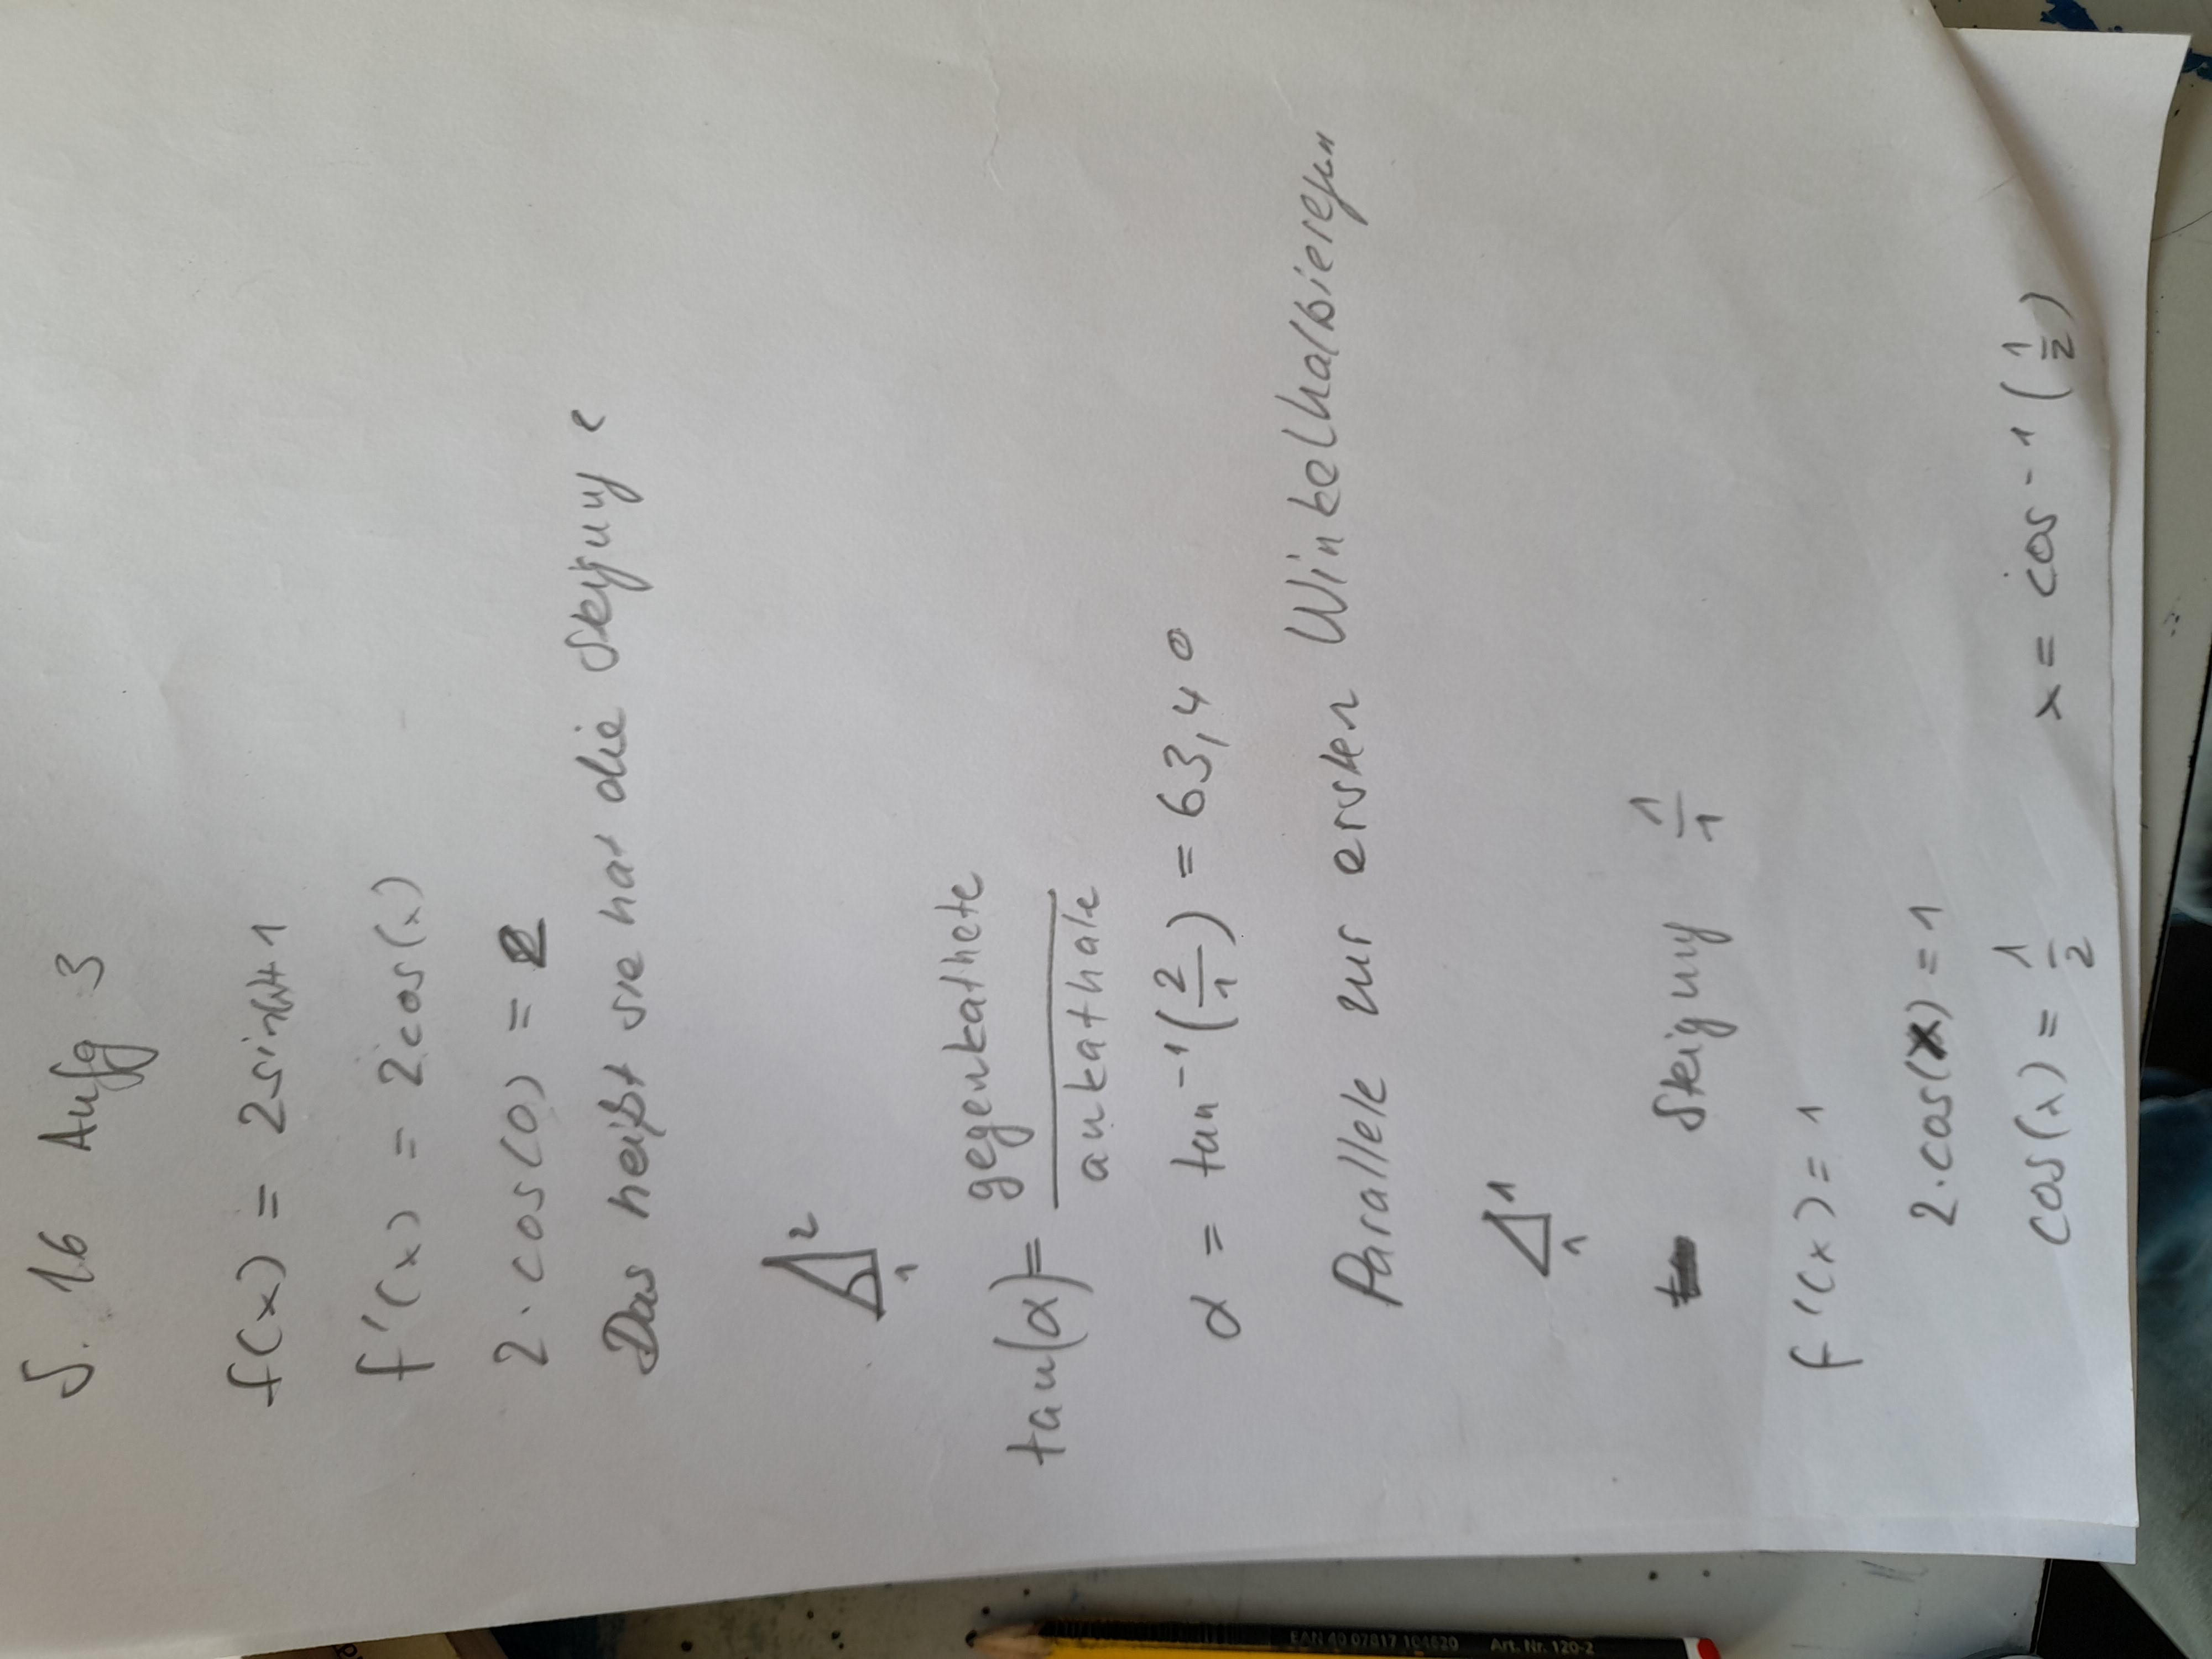 S. 16 Aufg 3
f(x) = 2sin(x)+1
f'(x) = 2cos(x)
2·cos(0) = 2
Das heißt sie hat die Steigung 2
2
1
tan(α) = gegenkathete
ankathate
α = tan⁻¹(2/1) = 63,4°
Parallele zur ersten Winkelhalbieregen
1
1
Steigung 1/1
f'(x) = 1
2·cos(x) = 1
cos(x) = 1/2 x = cos-1(1/2)
EAN 40 07817 104620 Art. Nr. 120-2